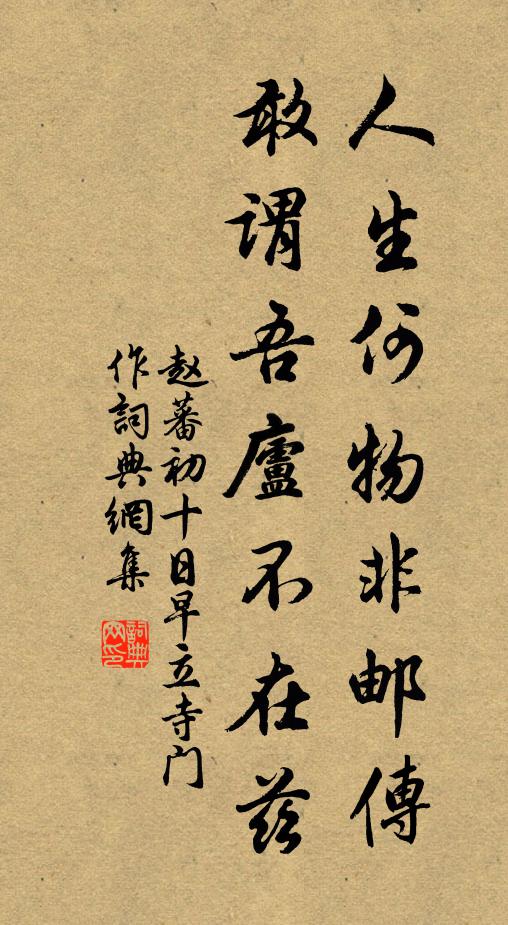 人生何物非邮傳
敢謂吾廬不在兹
赵蕃初十日早立寺门
作詞典網集
詞典网印